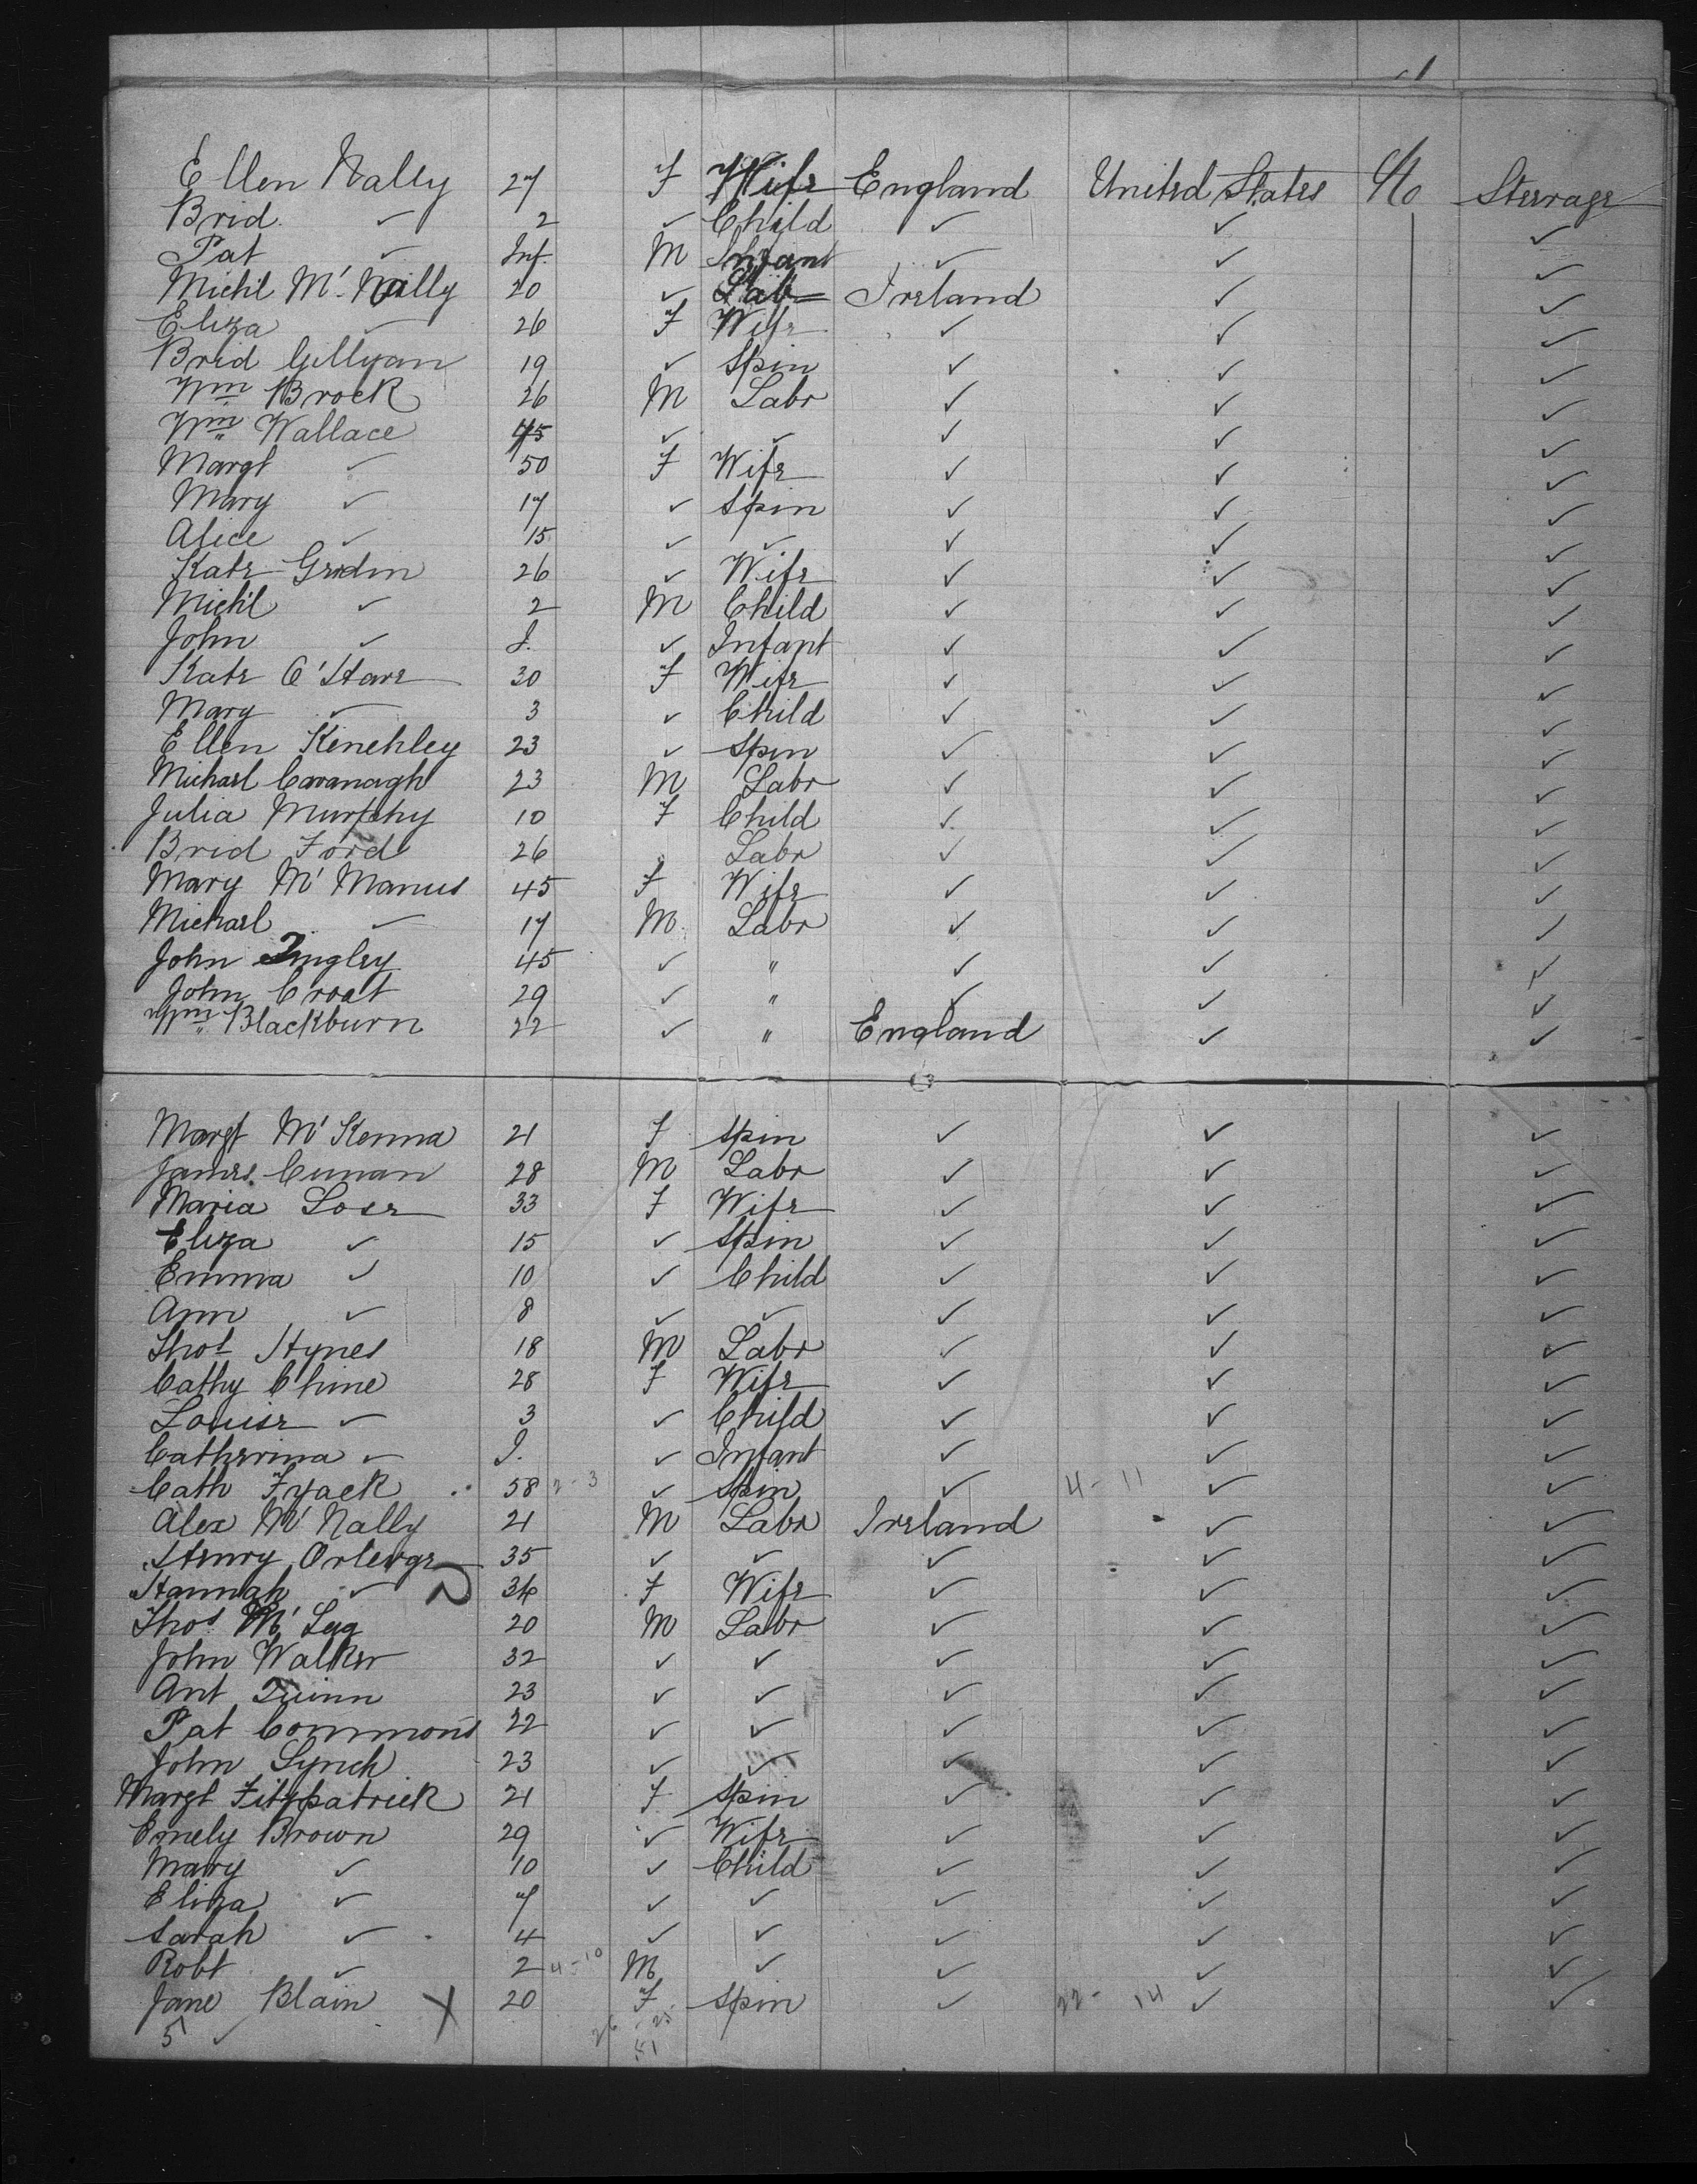 Ellen Nally 27 F Wife England United States No Steerage
Brid. ✓ 2 ✓ Child ✓ ✓ ✓
Pat ✓ Inf. M Infant ✓ ✓ ✓
Michl Mc Nally 20 ✓ Lab Ireland ✓ ✓
Eliza ✓ 26 F Wife ✓ ✓ ✓
Brid Gillyan 19 ✓ Spin ✓ ✓ ✓
Wm Brock 26 M Labr ✓ ✓ ✓
Wm Wallace 45 ✓ ✓ ✓ ✓ ✓
Margt ✓ 50 F Wife ✓ ✓ ✓
Mary ✓ 17 ✓ Spin ✓ ✓ ✓
Alice ✓ 15 ✓ ✓ ✓ ✓ ✓
Kate 26 ✓ Wife ✓ ✓ ✓
Michl ✓ 2 M Child ✓ ✓ ✓
John ✓ I. ✓ Infant ✓ ✓ ✓
Kate O'Hare 30 F Wife ✓ ✓ ✓
Mary ✓ 3 ✓ Child ✓ ✓ ✓
Ellen Kinehley 23 ✓ Spin ✓ ✓ ✓
Michael Cavanagh 23 M Labr ✓ ✓ ✓
Julia Murphy 10 F Child ✓ ✓ ✓
Brid Ford 26 Labr ✓ ✓ ✓
Mary Mc Manus 45 F Wife ✓ ✓ ✓
Michael ✓ 17 M Labr ✓ ✓ ✓
John 45 ✓ " ✓ ✓ ✓
John Croat 29 ✓ " ✓ ✓ ✓
Wm Blackburn 22 ✓ " England ✓ ✓
Margt Mc Kenna 21 F Spin ✓ ✓ ✓
James Cunan 28 M Labr ✓ ✓ ✓
Maria Lose 33 F Wife ✓ ✓ ✓
Eliza ✓ 15 ✓ Spin ✓ ✓ ✓
Emma ✓ 10 ✓ Child ✓ ✓ ✓
Ann ✓ 8 ✓ ✓ ✓ ✓ ✓
Thos Hynes 18 M Labr ✓ ✓ ✓
Cathy Chine 28 F Wife ✓ ✓ ✓
Louise ✓ 3 ✓ Child ✓ ✓ ✓
Catherina ✓ I. ✓ Infant ✓ ✓ ✓
Cath Fyack 58 2-3 ✓ Spin ✓ 4-11 ✓ ✓
Alex Mc Nally 21 M Labr Ireland ✓ ✓
Henry 35 ✓ ✓ ✓ ✓ ✓
Hannah ✓ 36 F Wife ✓ ✓ ✓
Thos Mc 20 M Labr ✓ ✓ ✓
John Walker 32 ✓ ✓ ✓ ✓ ✓
Ant Quinn 23 ✓ ✓ ✓ ✓ ✓
Pat Commons 22 ✓ ✓ ✓ ✓ ✓
John Lynch 23 ✓ ✓ ✓ ✓ ✓
Margt Fitzpatrick 21 F Spin ✓ ✓ ✓
Emely Brown 29 ✓ Wife ✓ ✓ ✓
Mary ✓ 10 ✓ Child ✓ ✓ ✓
Eliza ✓ 7 ✓ ✓ ✓ ✓ ✓
Sarah ✓ 4 ✓ ✓ ✓ ✓ ✓
Robt ✓ 2 4-10 M ✓ ✓ ✓ ✓
Jane Blain X 20 F Spin ✓ 22-14 ✓ ✓
51 ✓ 26 - 25
51